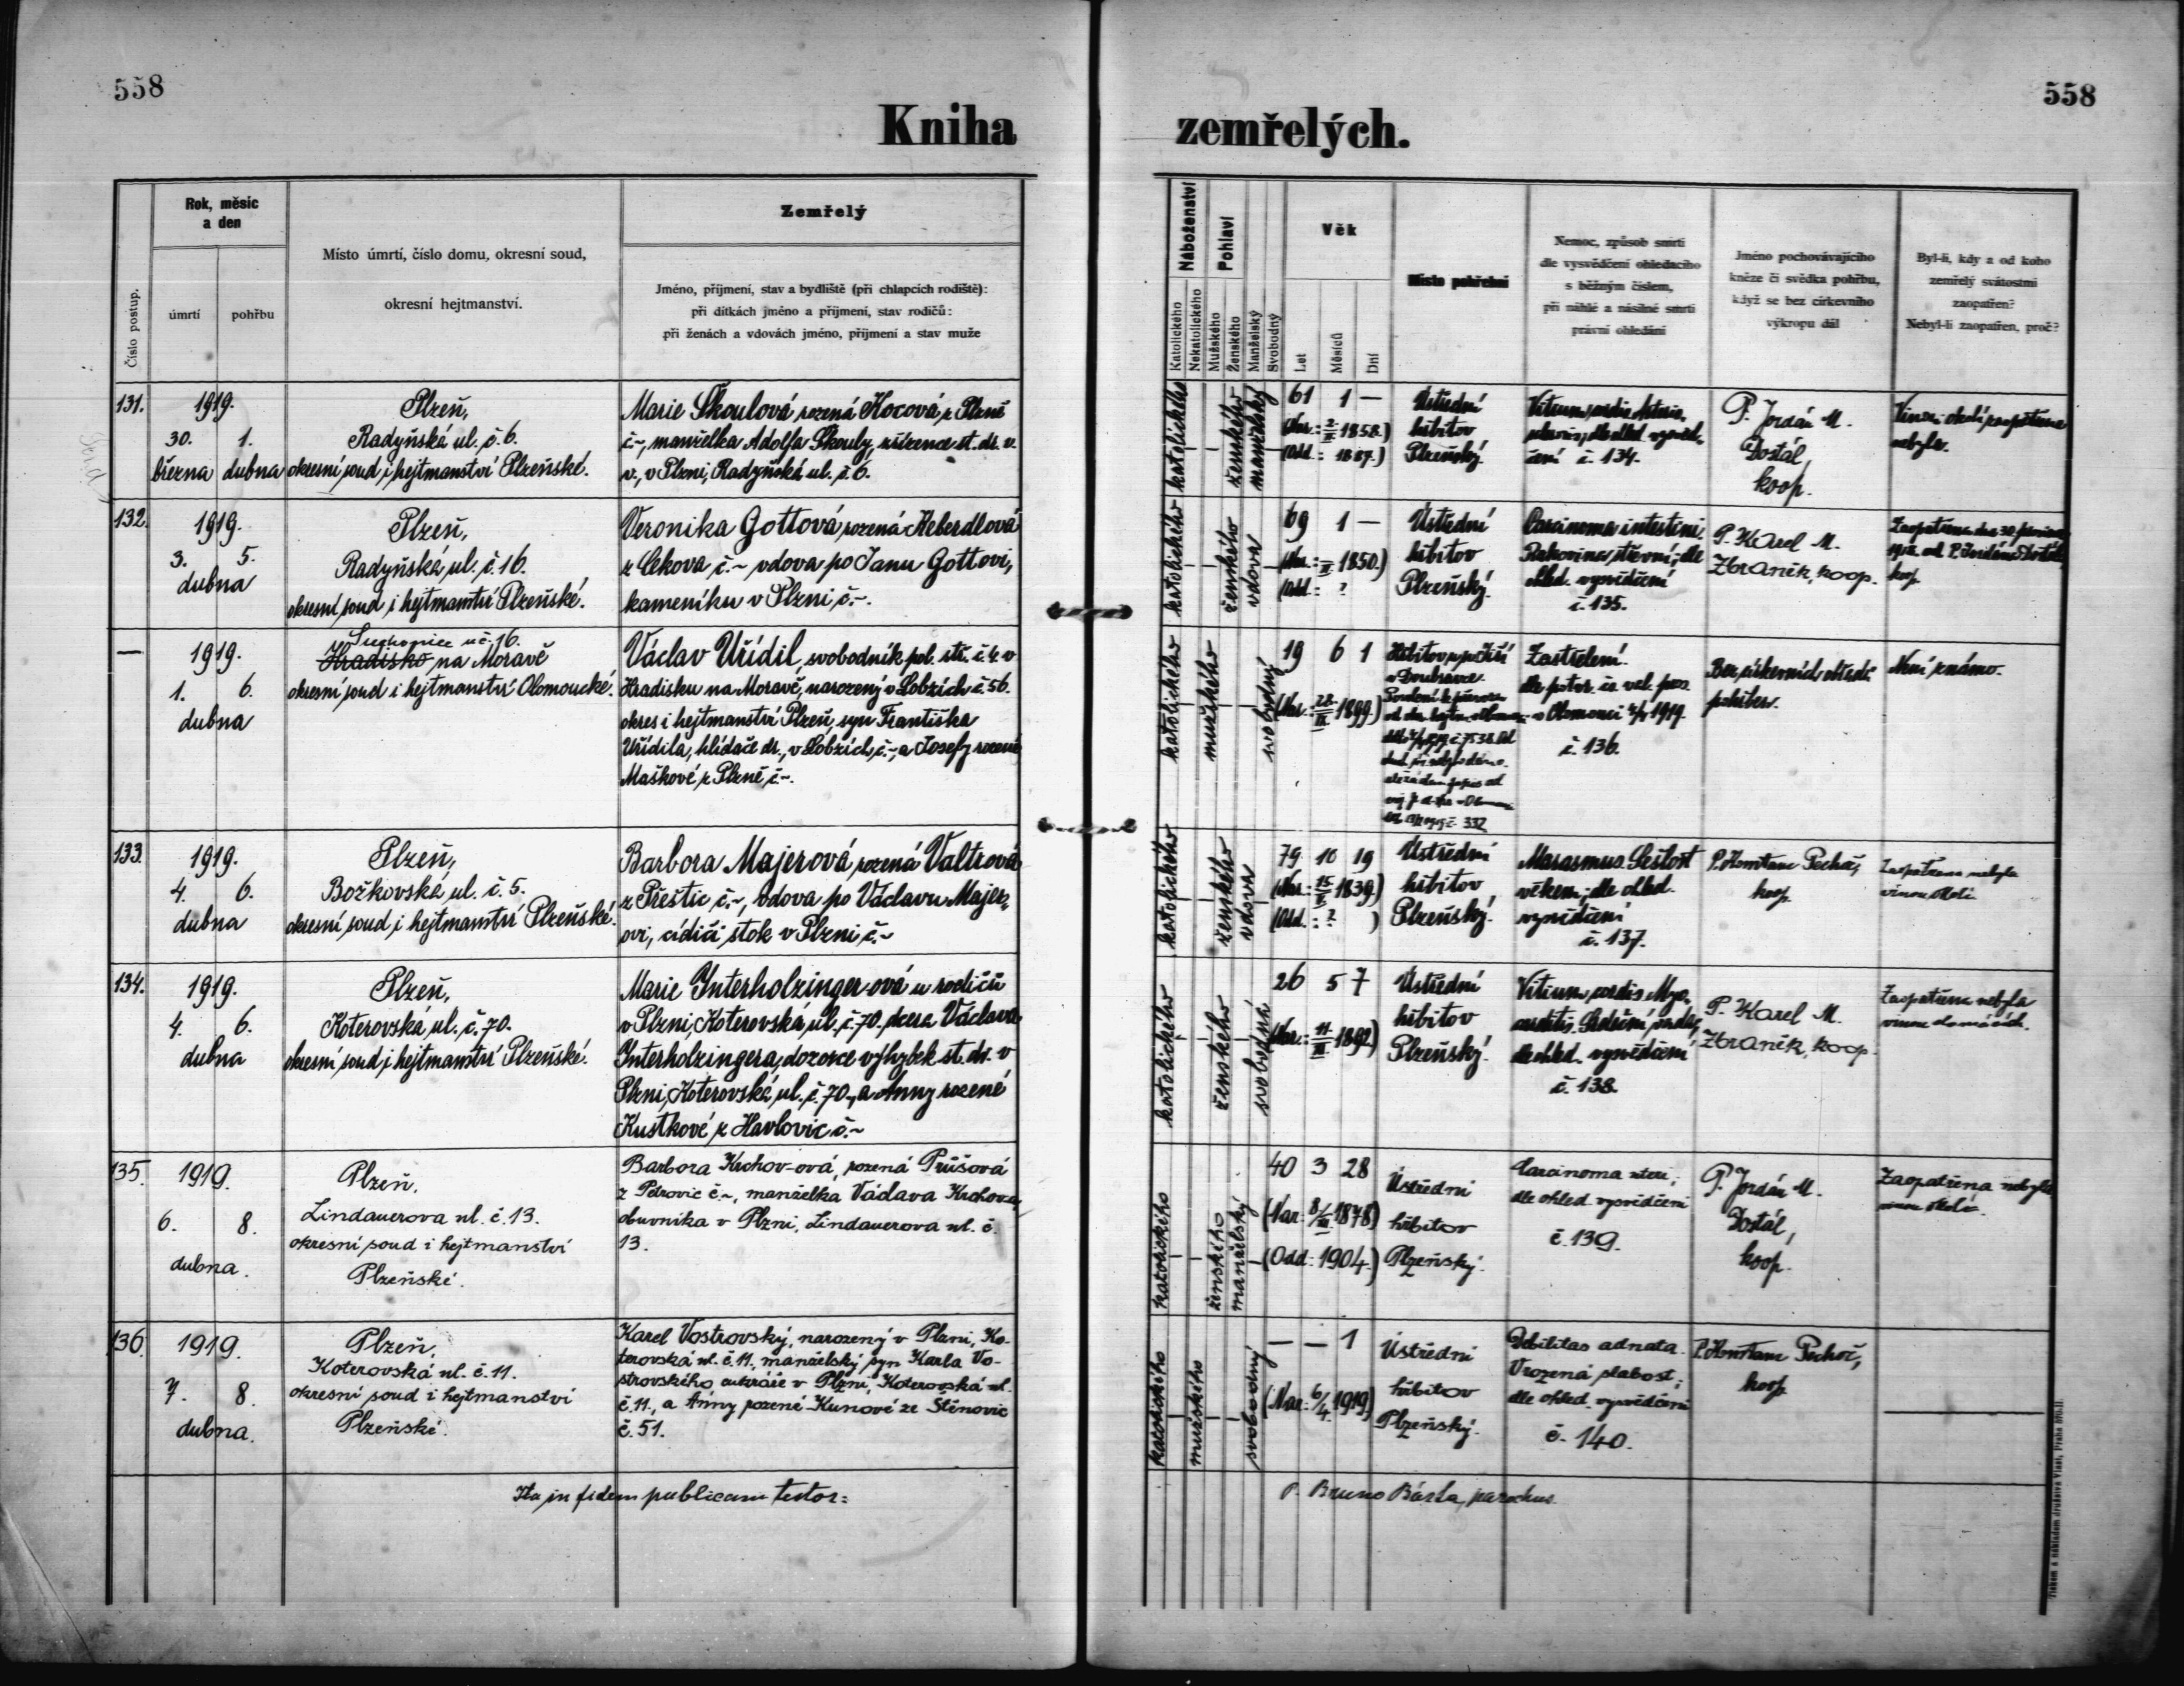 558
558
Kniha
zemřelých.
Číslo postup.
Rok, měsíc
a den
úmrtí
pohřbu
Místo úmrtí, číslo domu, okresní soud,
okresní hejtmanství.
Zemřelý
Jméno, příjmení, stav a bydliště (při chlapcích rodiště):
při dítkách jméno a příjmení, stav rodičů:
při ženách a vdovách jméno, příjmení a stav muže
Náboženství
Katolického
Nekatolického
Pohlaví
Mužského
Ženského
Manželský
Svobodný
Věk
Let
Měsíců
Dní
Místo pohřební
Nemoc, způsob smrti
dle vysvědčení ohledacího
s běžným číslem,
při náhlé a násilné smrti
právní ohledání
Jméno pochovávajícího
kněze či svědka pohřbu,
když se bez církevního
výkropu dál
Byl-li, kdy a od koho
zemřelý svátostmi
zaopatřen?
Nebyl-li zaopatřen, proč?
131.
1919.
30. 1.
března dubna
Plzeň,
Radyňská ul. č. 6.
okresní soud i hejtmanství Plzeňské.
Marie Škoulová, rozená Kocová z Plzně
č ~, manželka Adolfa Škouly, zřízence st. dr. v
v., v Plzni, Radyňská ul. č. 6.
katolického
ženského
manželský
61 1 —
(Nar.: 1858.)
(Odd.: 1887.)
Ústřední
hřbitov
Plzeňský.
Vitium cordis
č. 134.
P. Jordán M.
Dostál,
koop.
nebyla.
132.
1919.
3. 5.
dubna
Plzeň,
Radyňská ul. č. 16.
okresní soud i hejtmanství Plzeňské.
Veronika Gottová, rozená Heberdlová
z Cekova č. ~ vdova po Janu Gottovi,
kameníku v Plzni č. ~.
katolického
ženského
vdova
69 1 —
(Nar.: 1850.)
(Odd.: ?
Ústřední
hřbitov
Plzeňský.
Carcinoma intestini.
Rakovina střevní; dle
ohled. vysvědčení
č. 135.
P. Karel M.
Zbraněk, koop.
koop.
—
1919.
1. 6.
dubna
č. 16.
Hradisko na Moravě
okresní soud i hejtmanství Olomoucké.
Václav Uřídil, svobodník pol. stř. č. 4 v
Hradisku na Moravě, narozený v Lobzích č. 56.
okres i hejtmanství Plzeň, syn Františka
Uřídila, hlídače dr., v Lobzích č. ~, a Josefy rozené
Maškové z Plzně č ~.
katolického
mužského
svobodný
19 6 1
(Nar.: 1899.)
Hřbitov u sv. Jiří
v Doubravce.
č. 332
Zastřelení.
v Olomouci 1919.
č. 136.
Bez církevních obřadů
pohřben.
Není známo.
133.
1919.
4. 6.
dubna
Plzeň,
Božkovská ul. č. 5.
okresní soud i hejtmanství Plzeňské.
Barbora Majerová, rozená Valtrová
z Přeštic č. ~, vdova po Václavu Majer-
ovi, cídiči stok v Plzni č. ~
katolického
ženského
vdova
79 10 19
(Nar.: 1839.)
(Odd.: ? )
Ústřední
hřbitov
Plzeňský.
Marasmus. Sešlost
věkem; dle ohled.
vysvědčení
č. 137.
koop.
Zaopatřena nebyla
vinou okolí.
134.
1919.
4. 6.
dubna
Plzeň,
Koterovská ul. č. 70.
okresní soud i hejtmanství Plzeňské.
Marie Interholzinger-ová u rodičů
v Plzni, Koterovská ul. č. 70., dcera Václava
Interholzingera, dozorce výhybek st. dr. v
Plzni, Koterovská ul. č. 70., a Anny rozené
Kustkové z Havlovic č. ~
katolického
ženského
svobodná
26 5 7
(Nar.: 1892.)
Ústřední
hřbitov
Plzeňský.
Vitium cordis.
dle ohled. vysvědčení
č. 138.
P. Karel M.
Zbraněk, koop.
Zaopatřena nebyla
vinou domácích.
135.
1919.
6. 8.
dubna.
Plzeň.
Lindauerova ul. č. 13.
okresní soud i hejtmanství
Plzeňské.
Barbora Krchov-ová, rozená Průšová
z Petrovic č. ~, manželka Václava Krchova,
obuvníka v Plzni, Lindauerova ul. č.
13.
katolického
ženského
manželský
40 3 28
(Nar. 8/XII 1878)
(Odd: 1904.)
Ústřední
hřbitov
Plzeňský.
Carcinoma uteri;
dle ohled. vysvědčení
č. 139.
P. Jordán M.
Dostál,
koop.
Zaopatřena nebyla
vinou okolí.
136.
1919.
7. 8.
dubna.
Plzeň.
Koterovská ul. č. 11.
okresní soud i hejtmanství
Plzeňské.
Karel Vostrovský, narozený v Plzni, Ko-
terovská ul. č. 11., manželský syn Karla Vo-
strovského cukráře v Plzni, Koterovská ul.
č. 11., a Anny rozené Kunové ze Stěnovic
č. 51.
katolického
mužského
svobodný
— — 1
(Nar.: 6/4. 1919)
Ústřední
hřbitov
Plzeňský.
Debilitas adnata.
Vrozená slabost;
dle ohled. vysvědčení
č. 140.
koop.
Ita in fidem publicam testor:
P. Bruno Bárta, parochus.